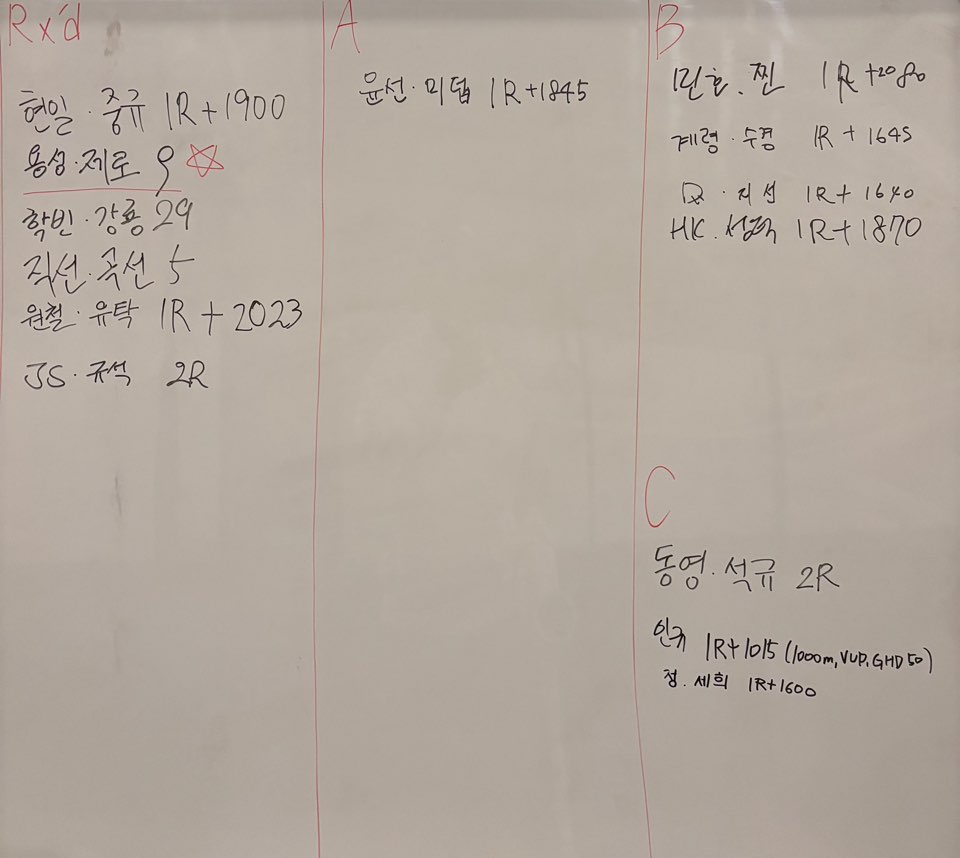 Rx'd
현일·중규 1R+1900
용성·제로 9
학빈·강룡 29
직선·곡선 5
원철·유탁 1R+2023
JS·규석 2R
A
윤선·미덥 1R+1845
B
민호.찐 1R+2080
계령·수경 1R+1645
·지선 1R+1640
HK. 1R+1870
C
동영.석규 2R
인규 1R+1015(1000m,VUP,GHD50)
청.세희 1R+1600